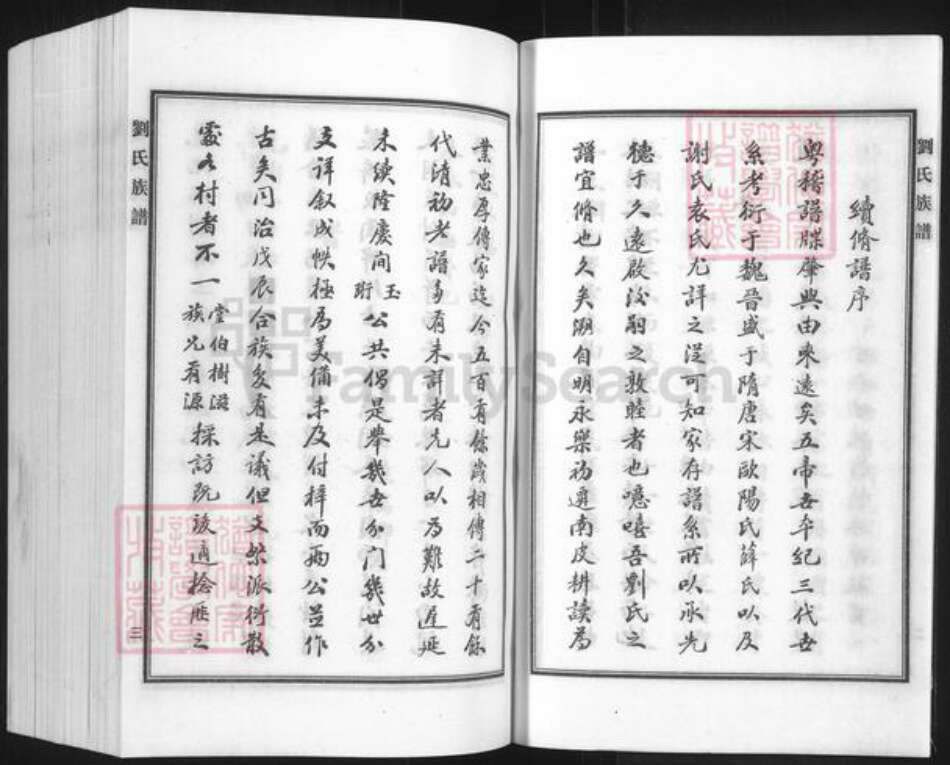 劉氏族譜
續脩譜序
粤稽譜牒肇興由來遠矣五帝世年紀三代世
系考衍于魏晉盛于隋唐宋歐陽氏薛氏以及
謝氏袁氏尤詳之從可知家存譜系所以承先
德于久遠啟後嗣之敦睦者也噫嘻吾劉氏之
譜宜脩也久矣溯自明永樂初遷南皮耕讀為
業忠厚傳家迄今五百有餘歲相傳二十有餘
代清初老譜多有未詳者先人以為難故遲延
未續隆慶間玉珩公共倡是舉幾世分門幾世分
支詳叙成帙極為美備未及付梓而兩公並作
古矣同治戊辰合族爰有是議但支繁派衍散
處各村者不一堂伯樹滋族兄有源採訪既該適捻匪之
劉氏族譜
三
FamilySearch